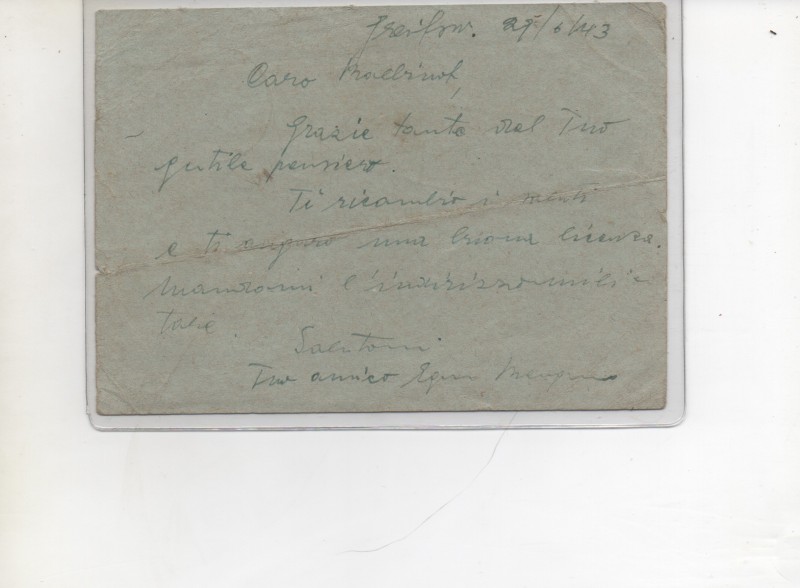 27/6/43
Caro
Grazie tante del Tuo
gentile pensiero.
Ti ricambio i
e ti auguro una buona licenza.
Mandami l'indirizzo mili-
tare.
Salutoni
Tuo amico